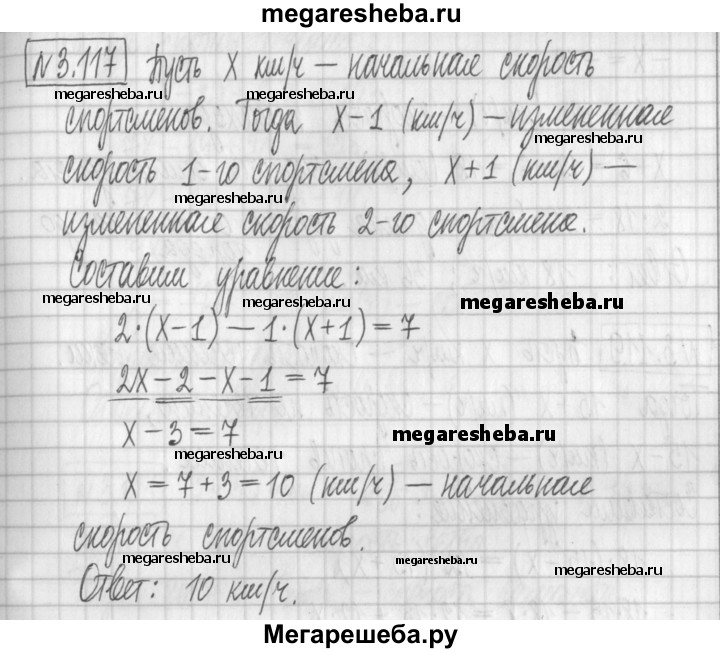 megaresheba.ru
№3.117 Пусть x км/ч – начальная скорость
megaresheba.ru megaresheba.ru
спортсменов. Тогда x-1 (км/ч) – измененная
megaresheba.ru
скорость 1-го спортсмена, x+1 (км/ч) –
megaresheba.ru
измененная скорость 2-го спортсмена.
Составим уравнение:
megaresheba.ru megaresheba.ru megaresheba.ru
2·(x-1) – 1·(x+1) = 7
2x-2-x-1 = 7
x-3 = 7
megaresheba.ru megaresheba.ru
x = 7+3 = 10 (км/ч) – начальная
скорость спортсменов.
megaresheba.ru megaresheba.ru megaresheba.ru
Ответ: 10 км/ч.
Мегарешеба.ру